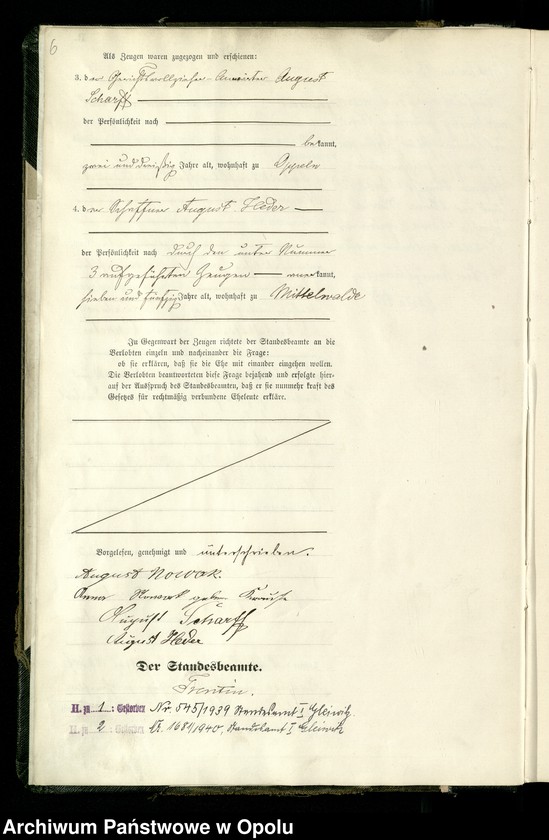 6
Als Zeugen waren zugezogen und erschienen:
3. der Gerichtsvollzieher-Anwärter August
Scharff
der Persönlichkeit nach
bekannt,
zwei und dreißig Jahre alt, wohnhaft zu Oppeln
4. der Schaffner August Heder
der Persönlichkeit nach durch den unter Nummer
3 aufgeführten Zeugen anerkannt,
sieben und fünfzig Jahre alt, wohnhaft zu Mittelwalde
In Gegenwart der Zeugen richtete der Standesbeamte an die
Verlobten einzeln und nacheinander die Frage:
ob sie erklären, daß sie die Ehe mit einander eingehen wollen.
Die Verlobten beantworteten diese Frage bejahend und erfolgte hier-
auf der Ausspruch des Standesbeamten, daß er sie nunmehr kraft des
Gesetzes für rechtmäßig verbundene Eheleute erkläre.
Vorgelesen, genehmigt und unterschrieben.
August Nowak.
Anna Nowak geborene Krause
August Scharff
August Heder
Der Standesbeamte.
H. zu 1: Gestorben Nr. 545/1939 Standesamt I Gleiwitz
H. zu 2: Gestorben Nr. 1681/1940, Standesamt I Gleiwitz
Archiwum Państwowe w Opolu